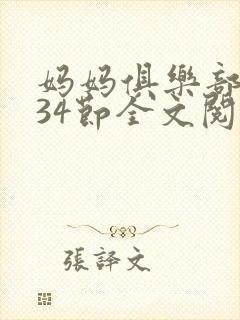 妈妈俱樂部
34節全文閱
張譯文